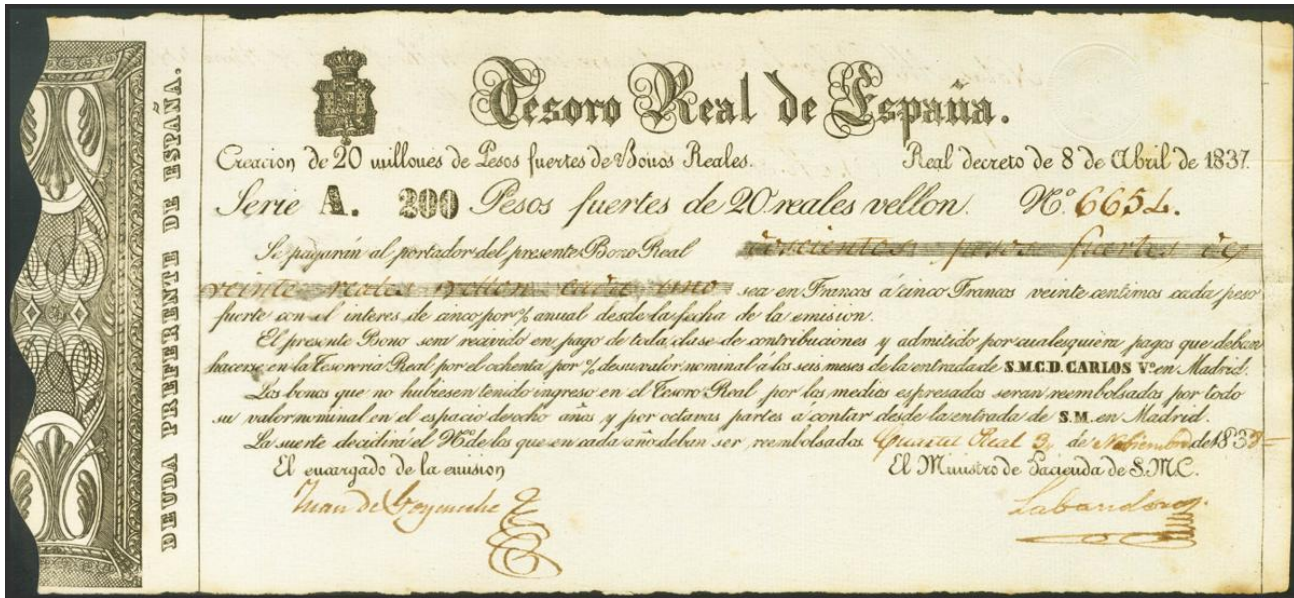 DEUDA PREFERENTE DE ESPAÑA.
Tesoro Real de España.
Creacion de 20 millones de Pesos fuertes de Bonos Reales. Real decreto de 8 de Abril de 1837.
Serie A. 200 Pesos fuertes de 20 reales vellon. Nº 6654.
Se pagarán al portador del presente Bono Real doscientos pesos fuertes de
veinte reales vellon cada uno sea en Francos á cinco Francos veinte centimos cada peso
fuerte con el interes de cinco por % anual desde la fecha de la emision.
El presente Bono sera recivido en pago de toda clase de contribuciones y admitido por cualesquiera pagos que deban
hacerse en la Tesoreria Real por el ochenta por % de su valor nominal á los seis meses de la entrada de S.M.C.D. CARLOS Vº en Madrid.
Los bonos que no hubiesen tenido ingreso en el Tesoro Real por los medios espresados seran reembolsados por todo
su valor nominal en el espacio de ocho años y por octavas partes a contar desde la entrada de S.M. en Madrid.
La suerte decidirá el Nº de los que en cada año deban ser reembolsados. Cuartel Real 3 de de 1838
El encargado de la emision El Ministro de Hacienda de S.M.C.
Juan de Goyeneche Labandero